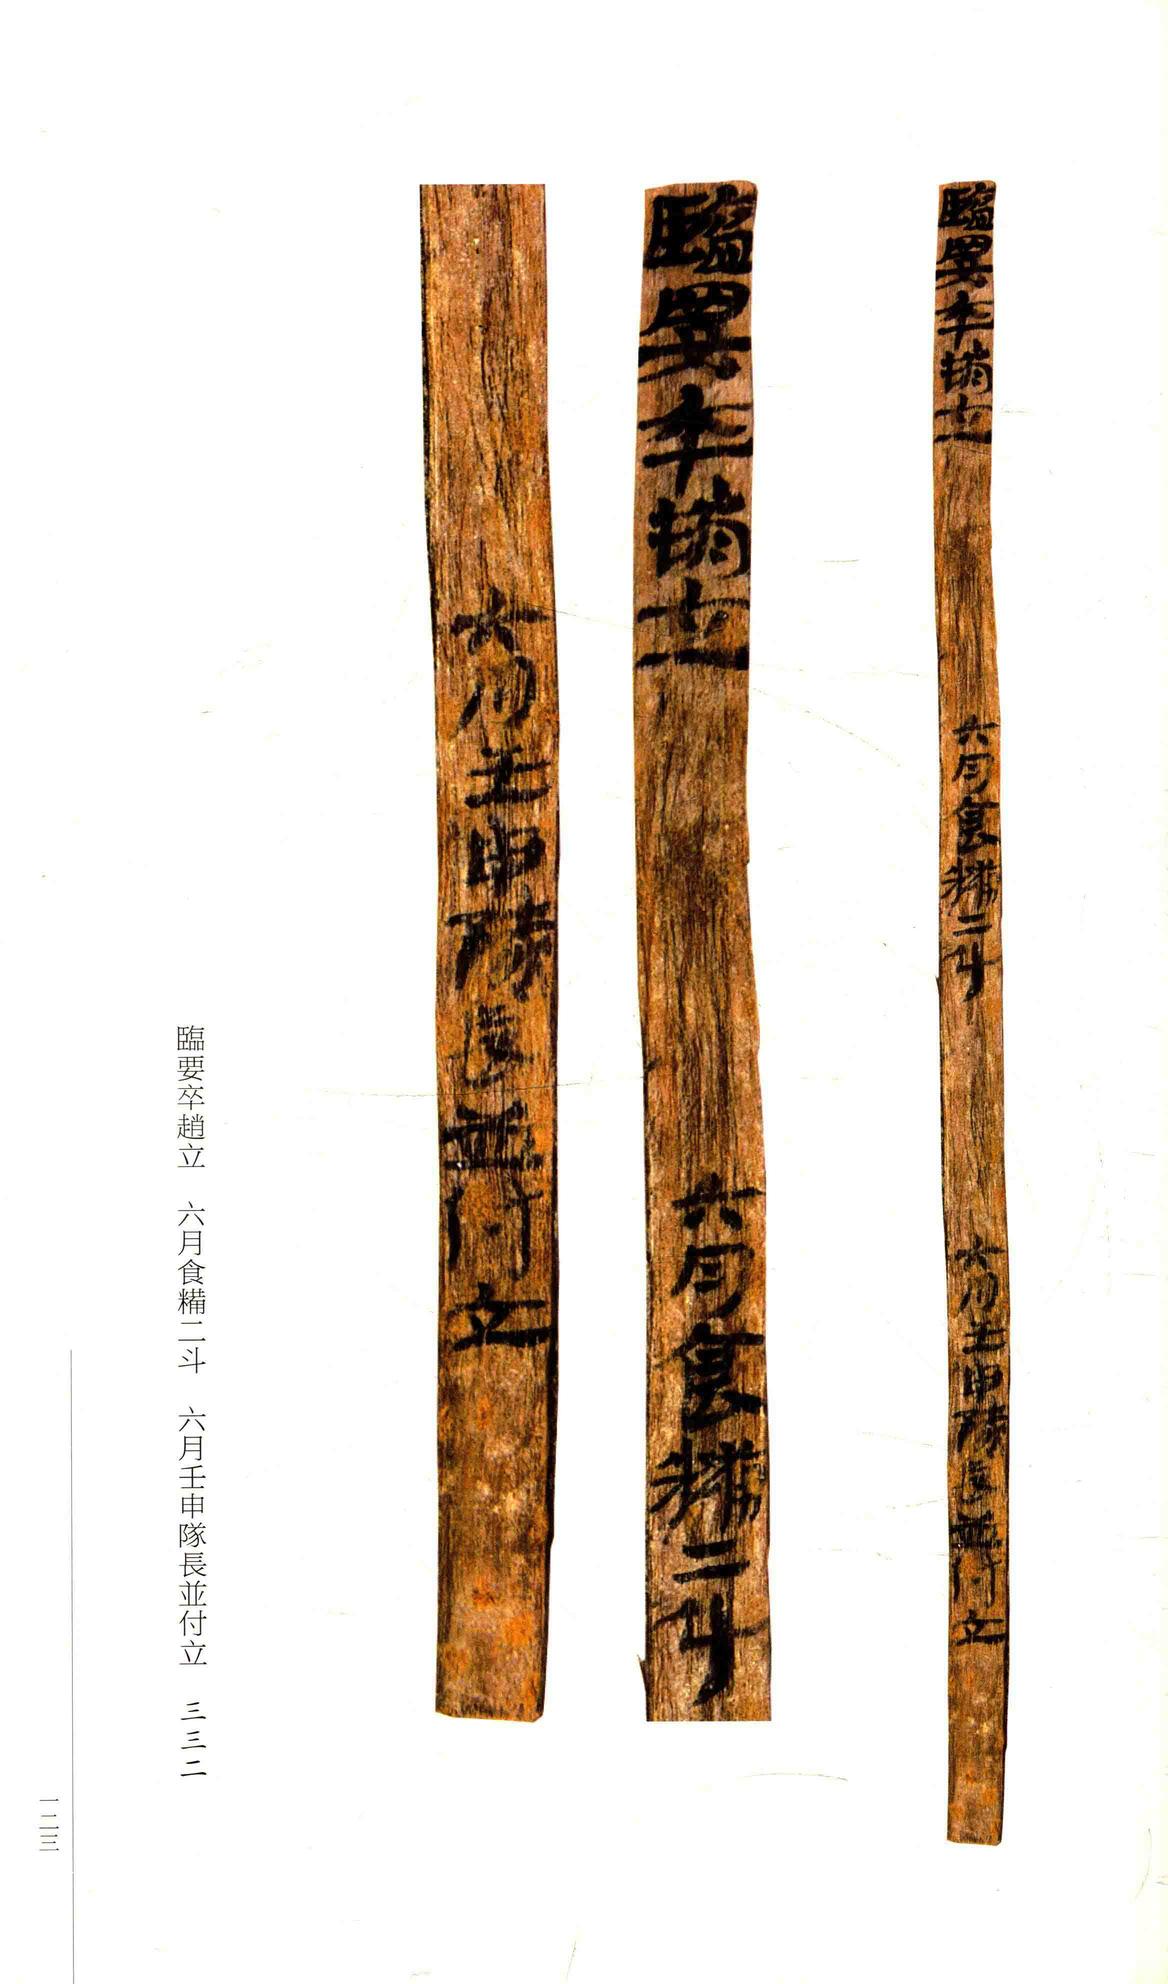 臨要卒趙立　六月食糒二斗　六月壬申隊長並付立
臨要卒趙立　六月食糒二斗
六月壬申隊長並付立
臨要卒趙立　六月食糒二斗　六月壬申隊長並付立　三三二
一二三